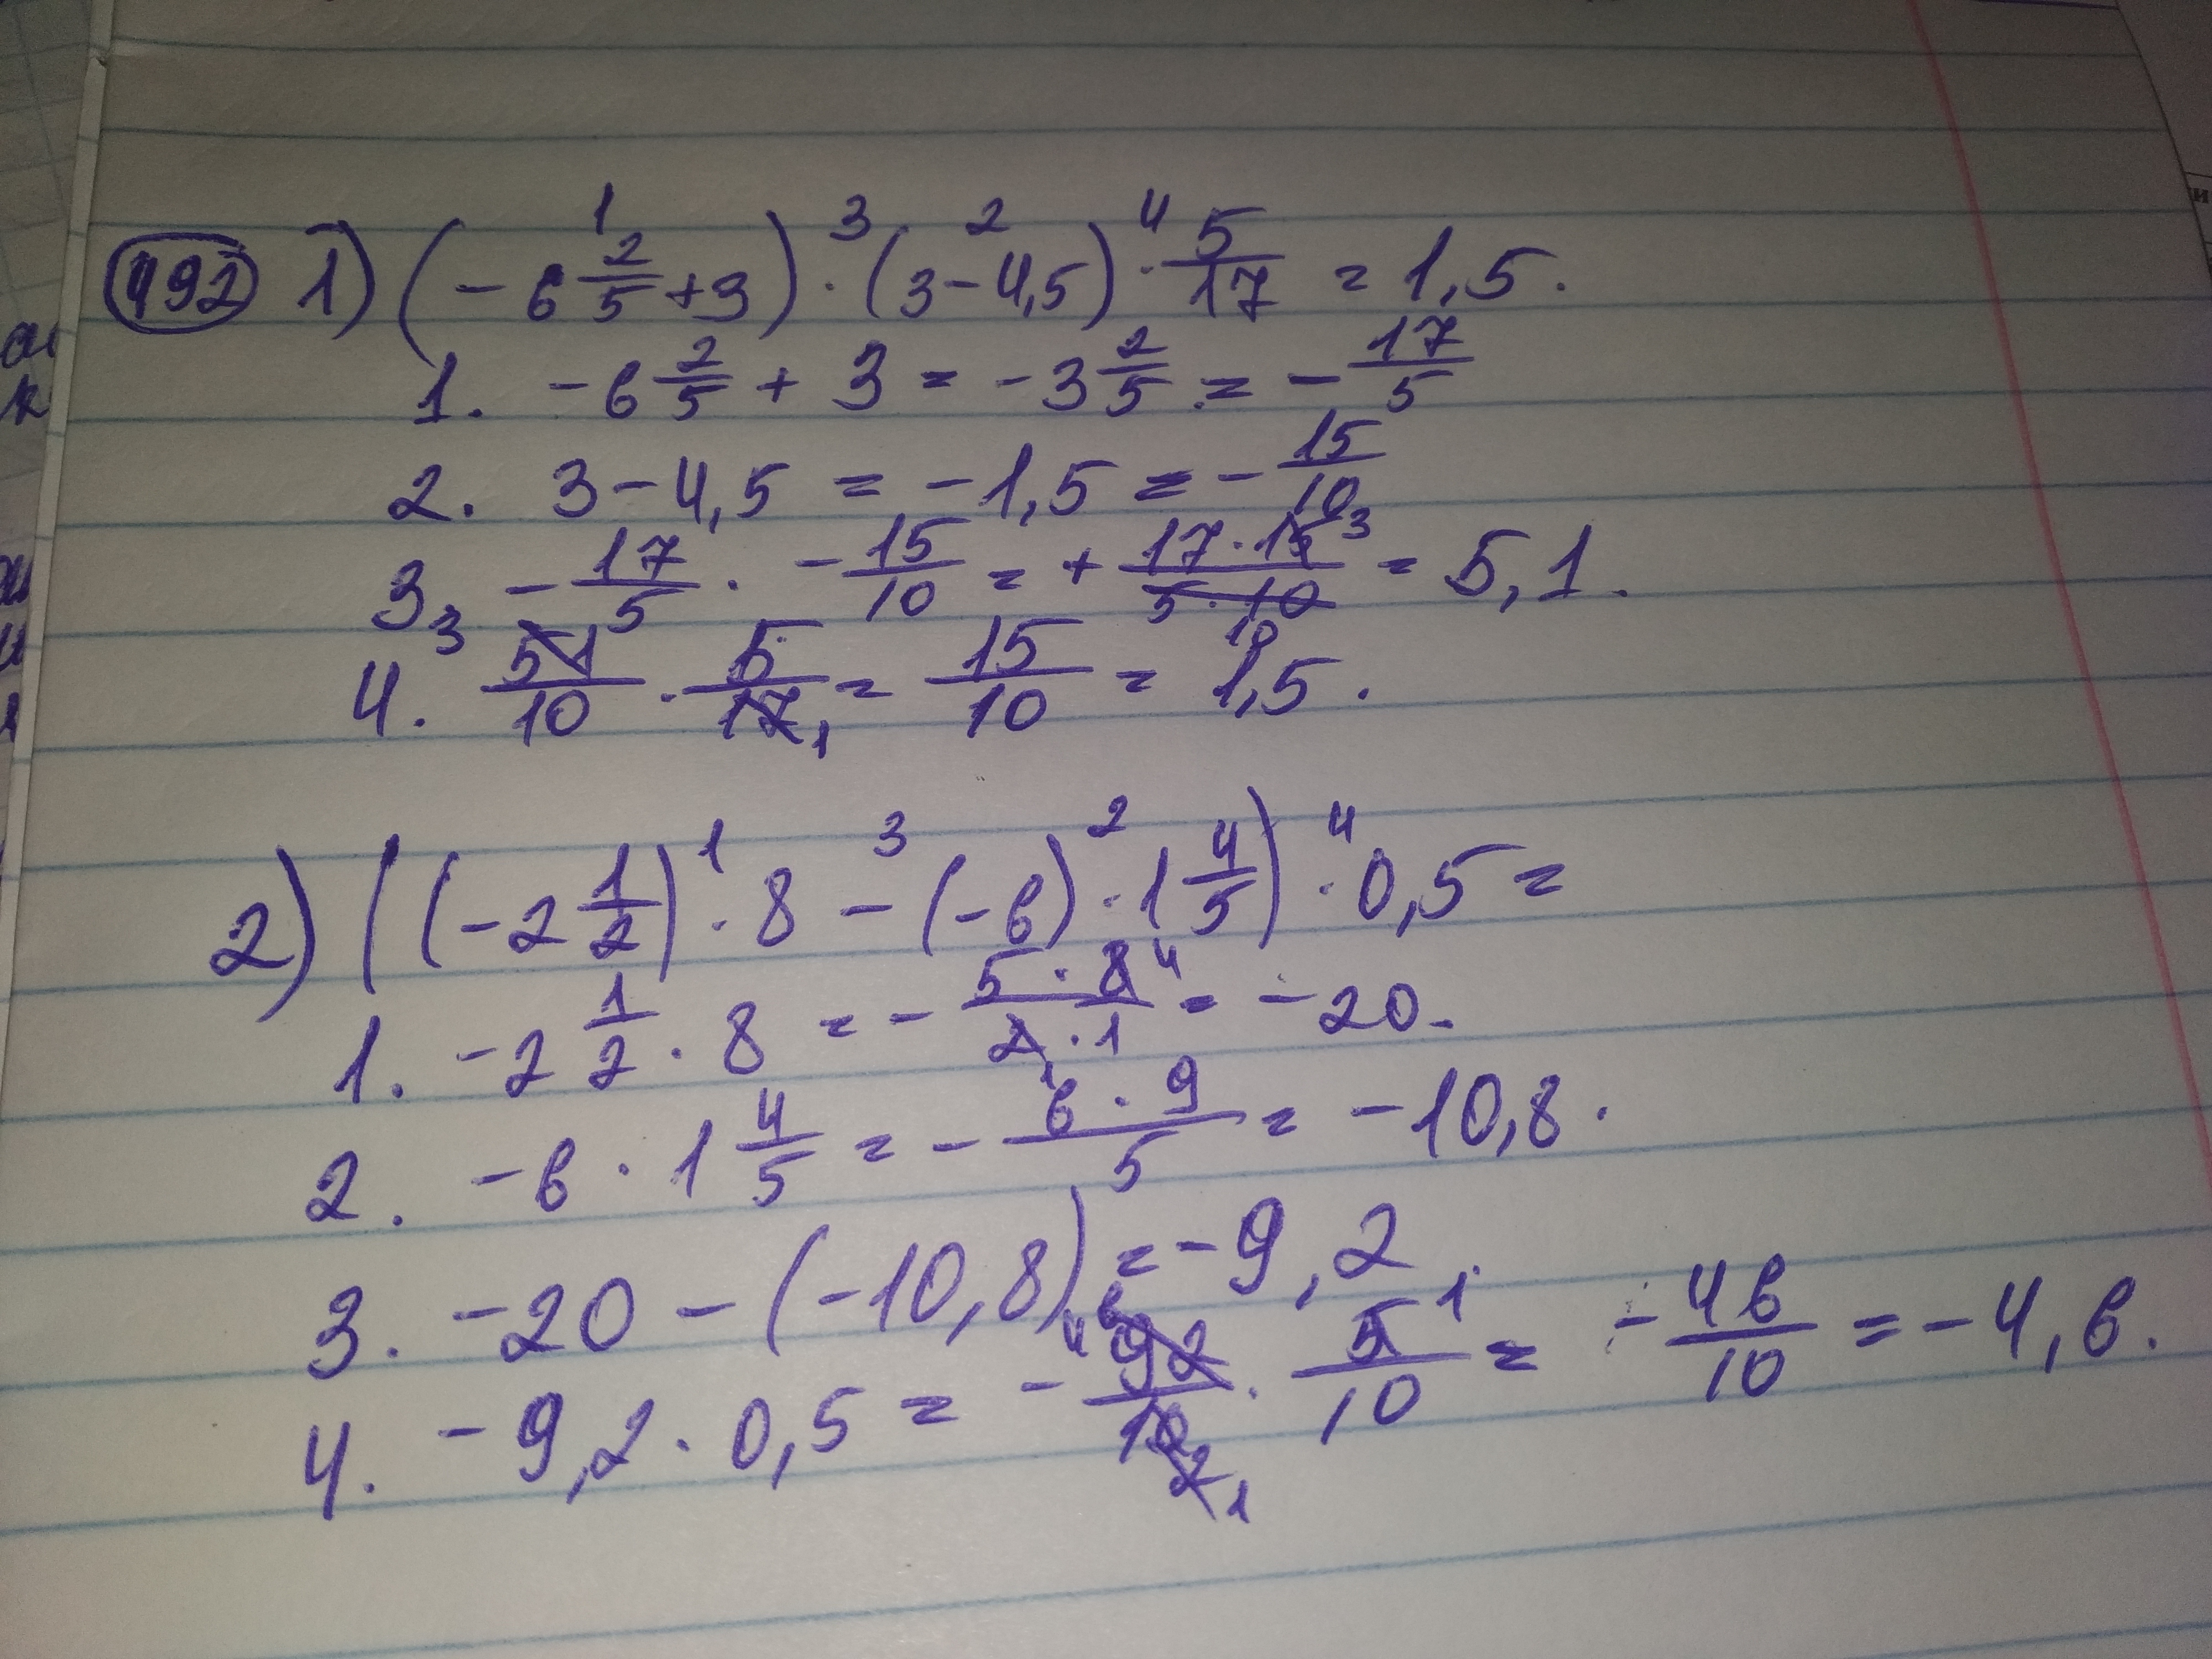 492 1) (-6 2/5 + 3) · (3 - 4,5) · 5/17 = 1,5.
1. -6 2/5 + 3 = -3 2/5 = - 17/5
2. 3 - 4,5 = -1,5 = - 15/10
3. - 17/5 · - 15/10 = + 17·15/5·10 = 5,1.
4. 51/10 · 5/17 = 15/10 = 1,5.
2) ((-2 1/2) · 8 - (-6) · 1 4/5) · 0,5 =
1. -2 1/2 · 8 = - 5·8/2·1 = -20.
2. -6 · 1 4/5 = - 6·9/5 = -10,8.
3. -20 - (-10,8) = -9,2.
4. -9,2 · 0,5 = - 92/10 · 5/10 = - 46/10 = -4,6.